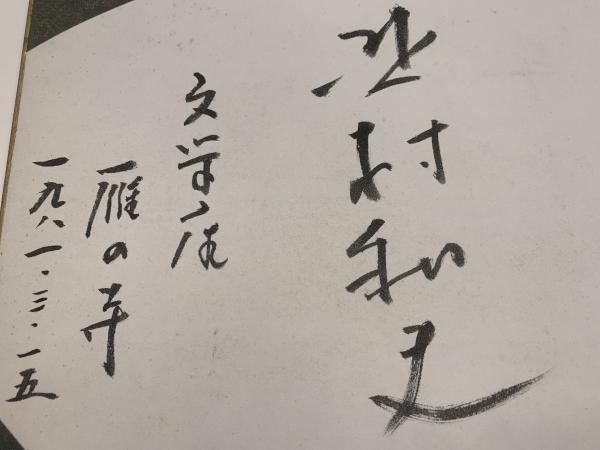 北村和夫
文学座
雁の寺
一九八一・三・一五